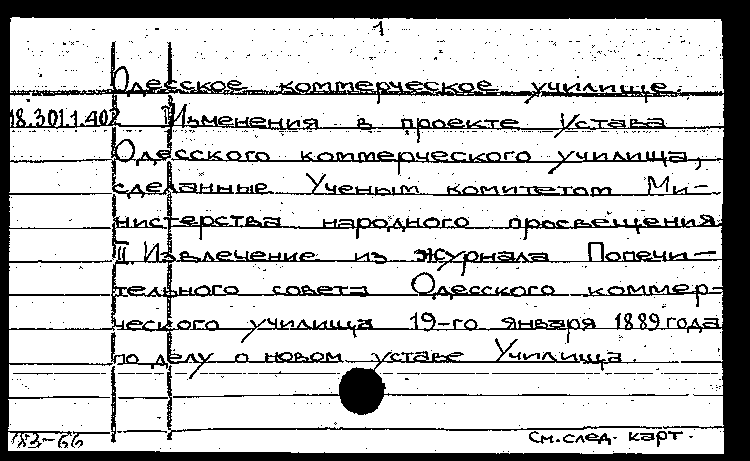 1
Одесское коммерческое училище.
18.301.1.402 I Изменения в проекте Устава
Одесского коммерческого училища,
сделанные Ученым комитетом Ми-
нистерства народного просвещения.
II. Извлечение из журнала Попечи-
тельного совета Одесского коммер-
ческого училища 19-го января 1889 года
по делу о новом уставе Училища.
183-66 См. след. карт.